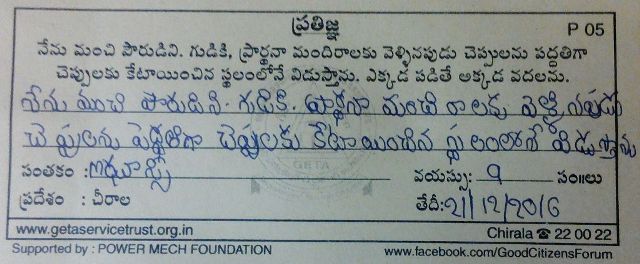 ప్రతిజ్ఞ
P 05
నేను మంచి పౌరుడిని. గుడికి, ప్రార్థనా మందిరాలకు వెళ్ళినపుడు చెప్పులను పద్ధతిగా
చెప్పులకు కేటాయించిన స్థలంలోనే విడుస్తాను. ఎక్కడ పడితే అక్కడ వదలను.
నేను మంచి పౌరుడిని. గుడికి. ప్రార్థనా మందిరాలకు వెళ్ళినపుడు
చెప్పులను పద్ధతిగా చెప్పులకు కేటాయించిన స్థలంలోనే విడుస్తాను
సంతకం :
వయస్సు: 9 సం॥లు
ప్రదేశం : చీరాల
తేదీ: 21/12/2016
www.getaservicetrust.org.in
Chirala ☎ 22 00 22
Supported by : POWER MECH FOUNDATION
www.facebook.com/GoodCitizensForum